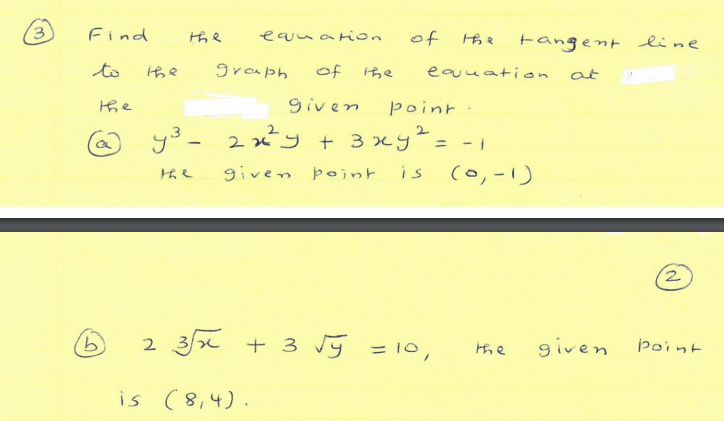 ③ Find the equation of the tangent line
to the graph of the equation at
the given point.
ⓐ y³ - 2x²y + 3xy² = -1
the given point is (0,-1)
②
ⓑ 2 ∛x + 3 √y = 10, the given point
is (8,4).